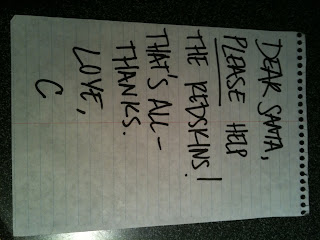 DEAR SANTA,
PLEASE HELP
THE REDSKINS!
THAT'S ALL -
THANKS.
LOVE,
C